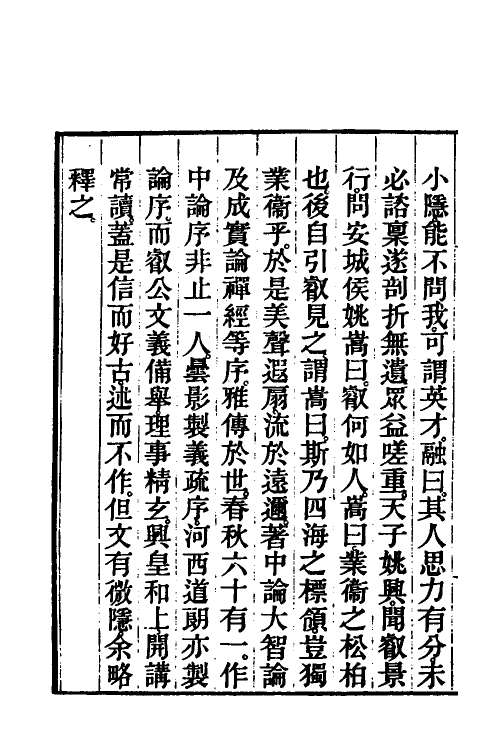 小隱能不問我可謂英才。融曰。其人思力有分未
必諮稟遂剖折無遺。眾益嗟重。天子姚興。聞叡景
行。問安城侯姚嵩曰。叡何如人。嵩曰業衞之松柏
也。後自引叡見之。謂嵩曰。斯乃四海之標領豈獨
業衞乎。於是美聲遐扇。流於遠邇。著中論大智論
及成實論禪經等序。雅傳於世。春秋六十有一。作
中論序非止一人。曇影製義疏序。河西道朗亦製
論序。而叡公文義備舉。理事精玄。興皇和上。開講
常讀。蓋是信而好古。述而不作。但文有微隱。余略
釋之。